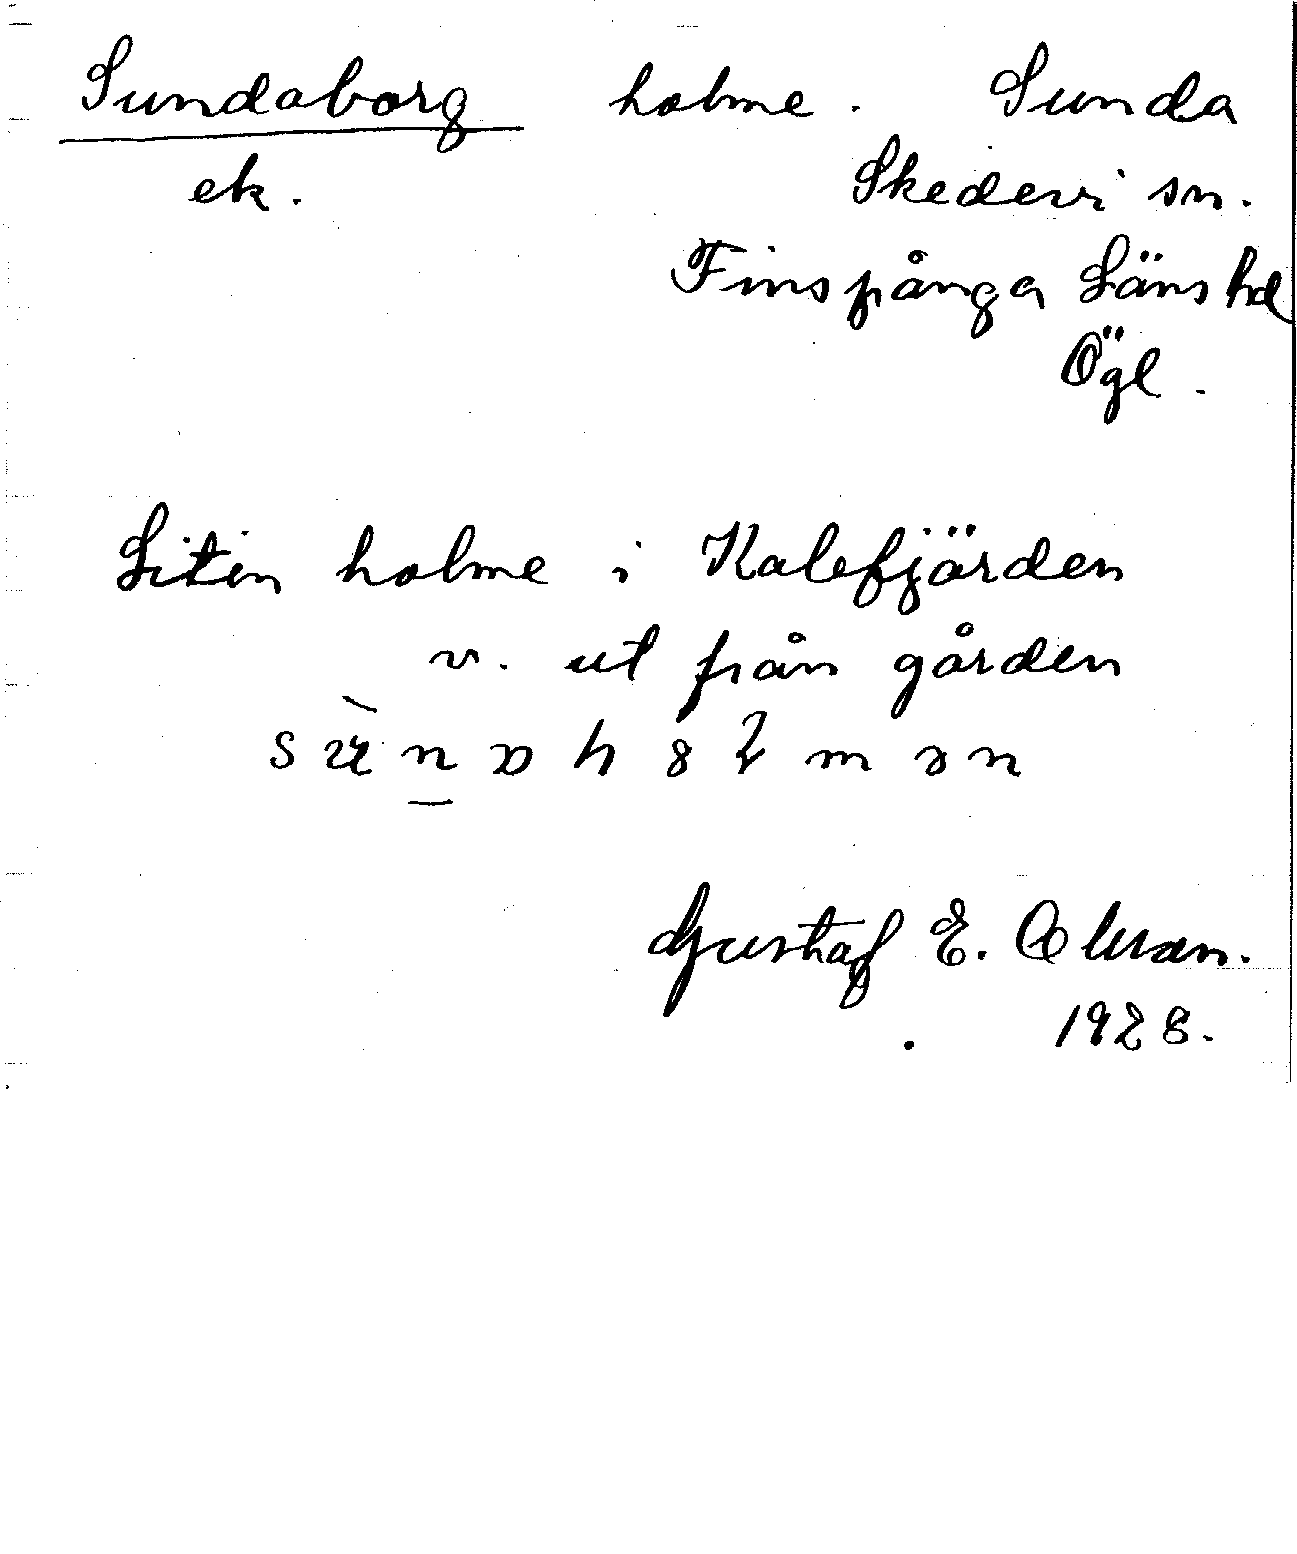 Sundaborg holme. Sunda
ek. Skedevi sn.
Finspånga Läns hd
Ögl.
Liten holme i Kalefjärden
v. ut från gården
Gustaf E. Olsson.
1928.